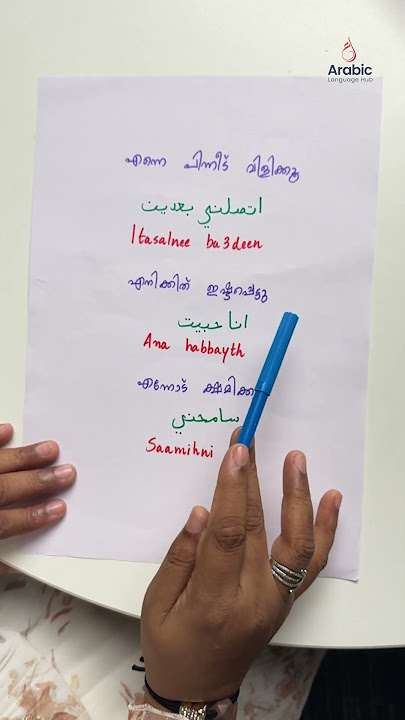 Arabic
Language Hub
എന്നെ പിന്നീട് വിളിക്കൂ
اتصلني بعدين
Itasalnee ba3deen
എനിക്കിത് ഇഷ്ടപ്പെട്ടു
انا حبيت
Ana habbayth
എന്നോട് ക്ഷമിക്ക
سامحني
Saamihni